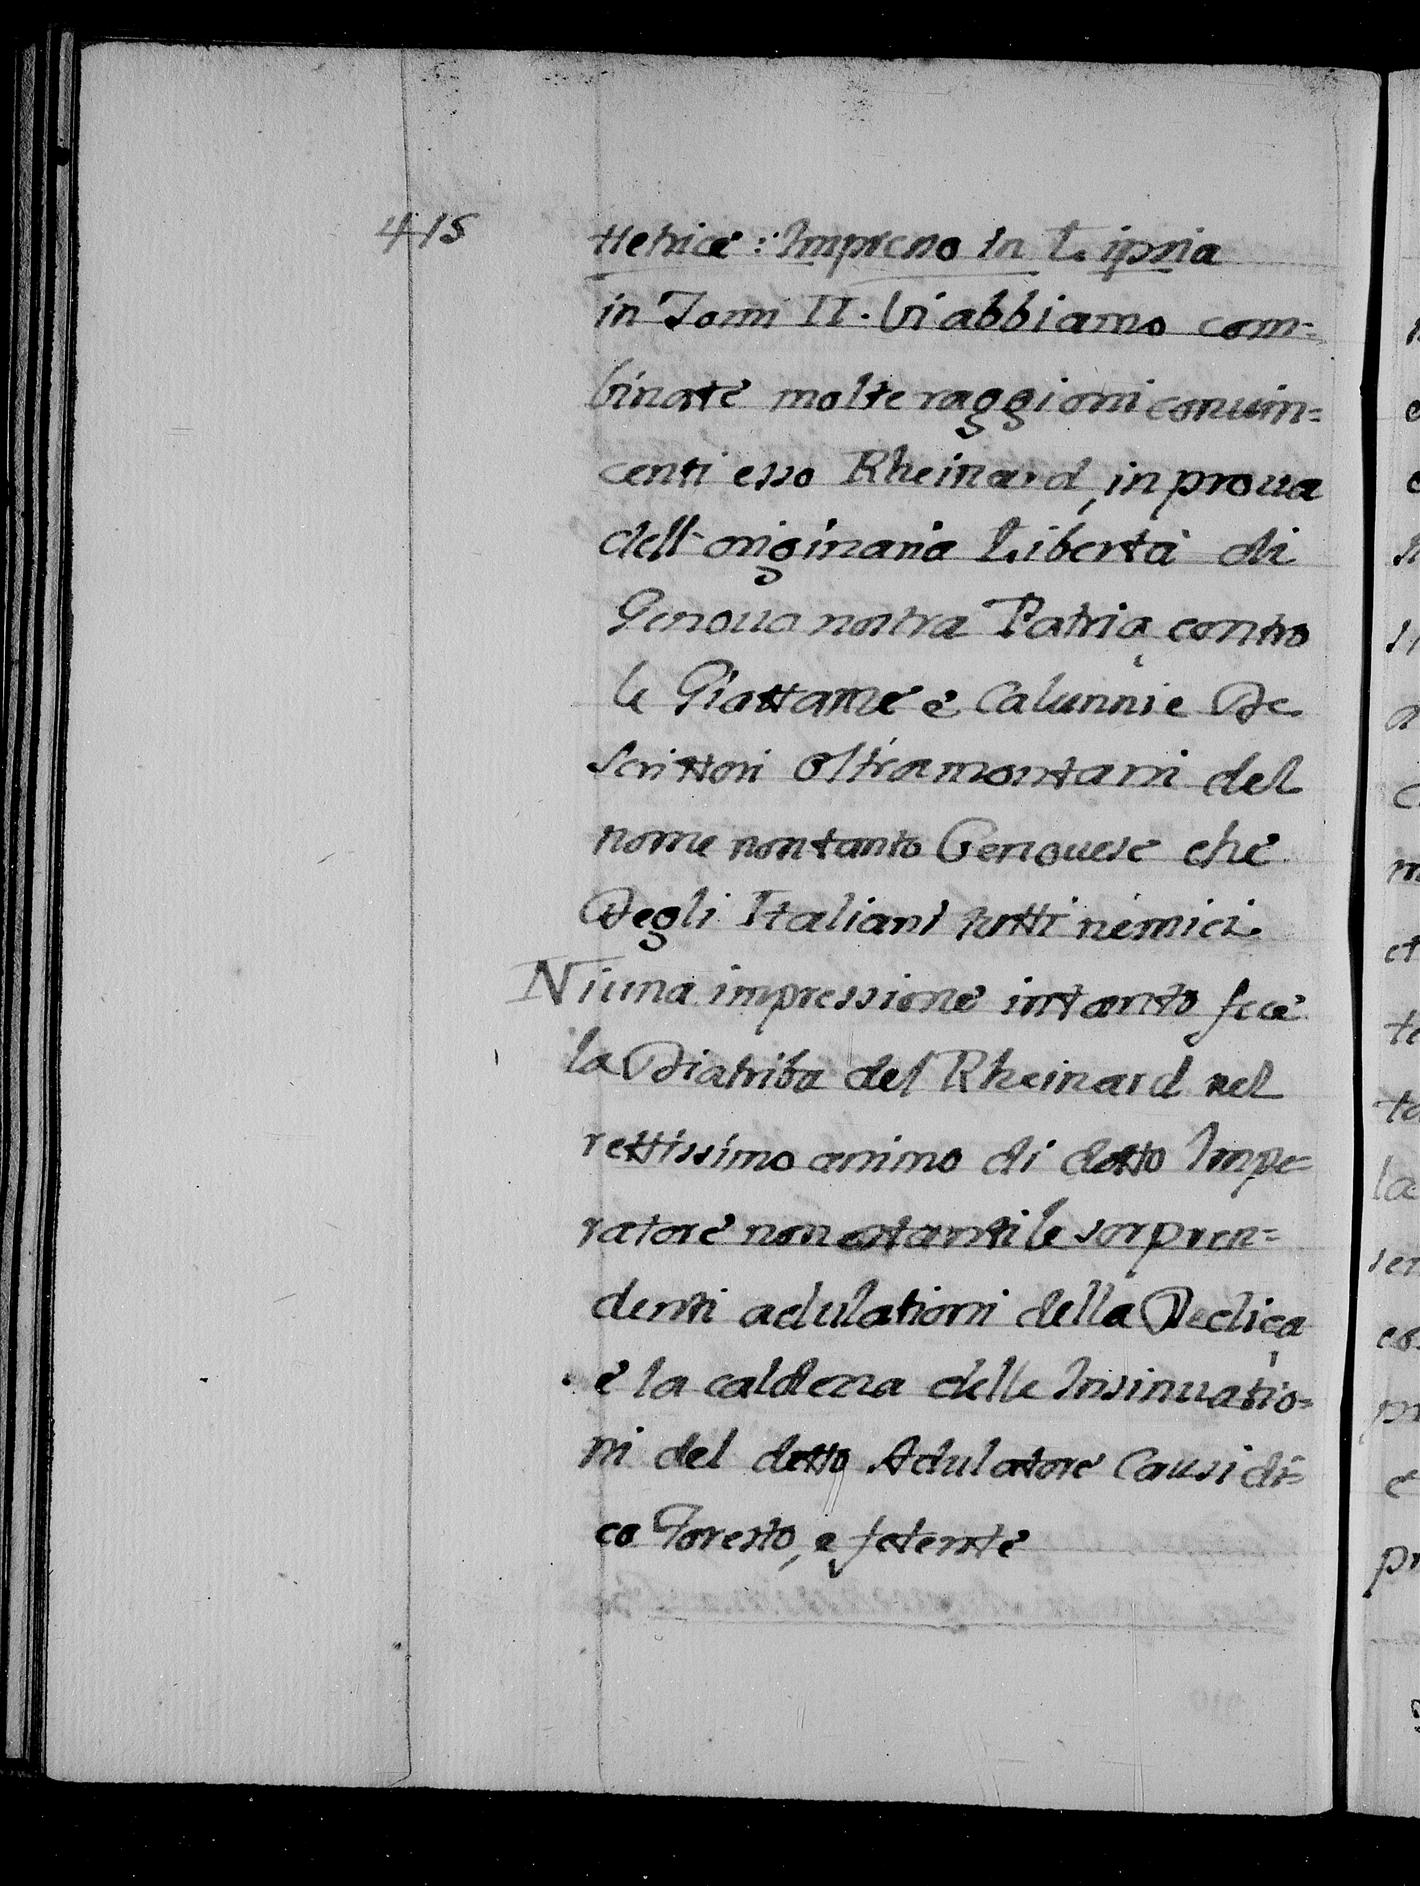 415
ttetrice: Impresso in Lipsia
in Tomi II. Vi abbiamo com=
binate molte raggioni conuin=
centi esso Rheinard, in proua
dell'originaria Libertà di
Genoua nostra Patria, contro
le Giattanze e Calunnie De
Scrittori oltramontani del
nome non tanto Genouese che
Degli Italiani tutti nemici.
Niuna impressione intanto fece
la Diatriba del Rheinard nel
rettissimo animo di detto Impe=
ratore non ostanti le sorpren=
denti adulationi della Dedica,
e la caldezza delle Insinuatio=
ni del detto Adulatore Causidi=
co Foresto, e fetente